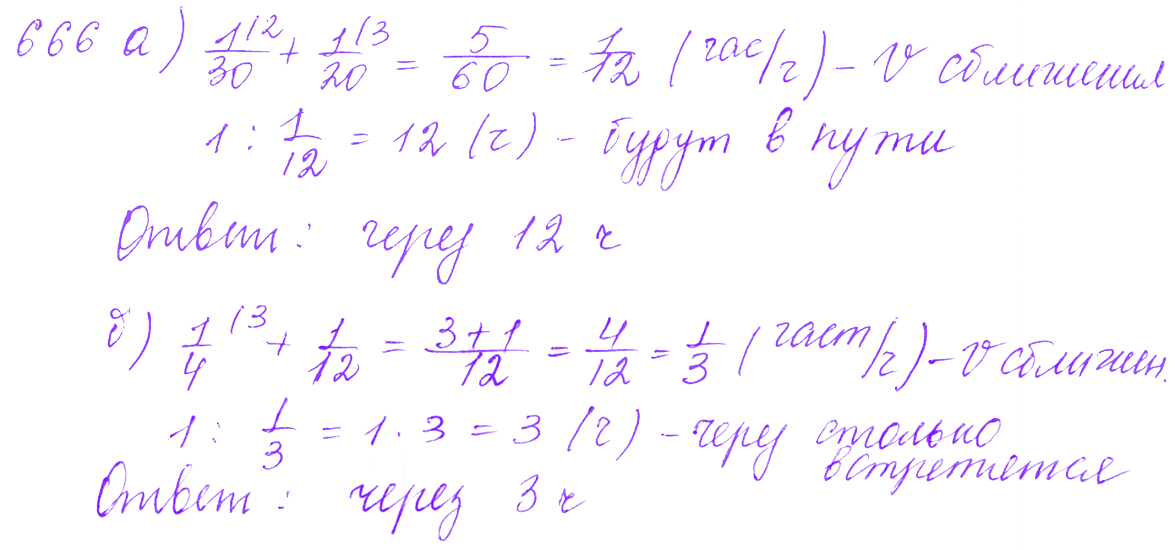 666 а) 1/2/30 + 1/3/20 = 5/60 = 1/12 (час/ч) - V сближения
1 : 1/12 = 12 (ч) - будут в пути
Ответ: через 12 ч
б) 1/3/4 + 1/12 = 3+1/12 = 4/12 = 1/3 (част/ч) - V сближен.
1 : 1/3 = 1 · 3 = 3 (ч) - через столько
встретятся
Ответ: через 3 ч